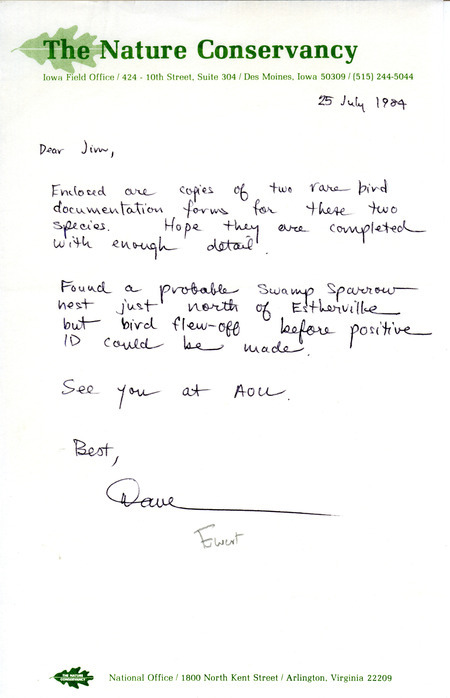 The Nature Conservancy
Iowa Field Office / 424 - 10th Street, Suite 304 / Des Moines, Iowa 50309 / (515) 244-5044
25 July 1984
Dear Jim,
Enclosed are copies of two rare bird
documentation forms for these two
species. Hope they are completed
with enough detail.
Found a probable Swamp Sparrow
nest just north of Estherville
but bird flew-off before positive
ID could be made.
See you at AOU.
Best,
Dave
Ewert
THE NATURE
CONSERVANCY
National Office / 1800 North Kent Street / Arlington, Virginia 22209